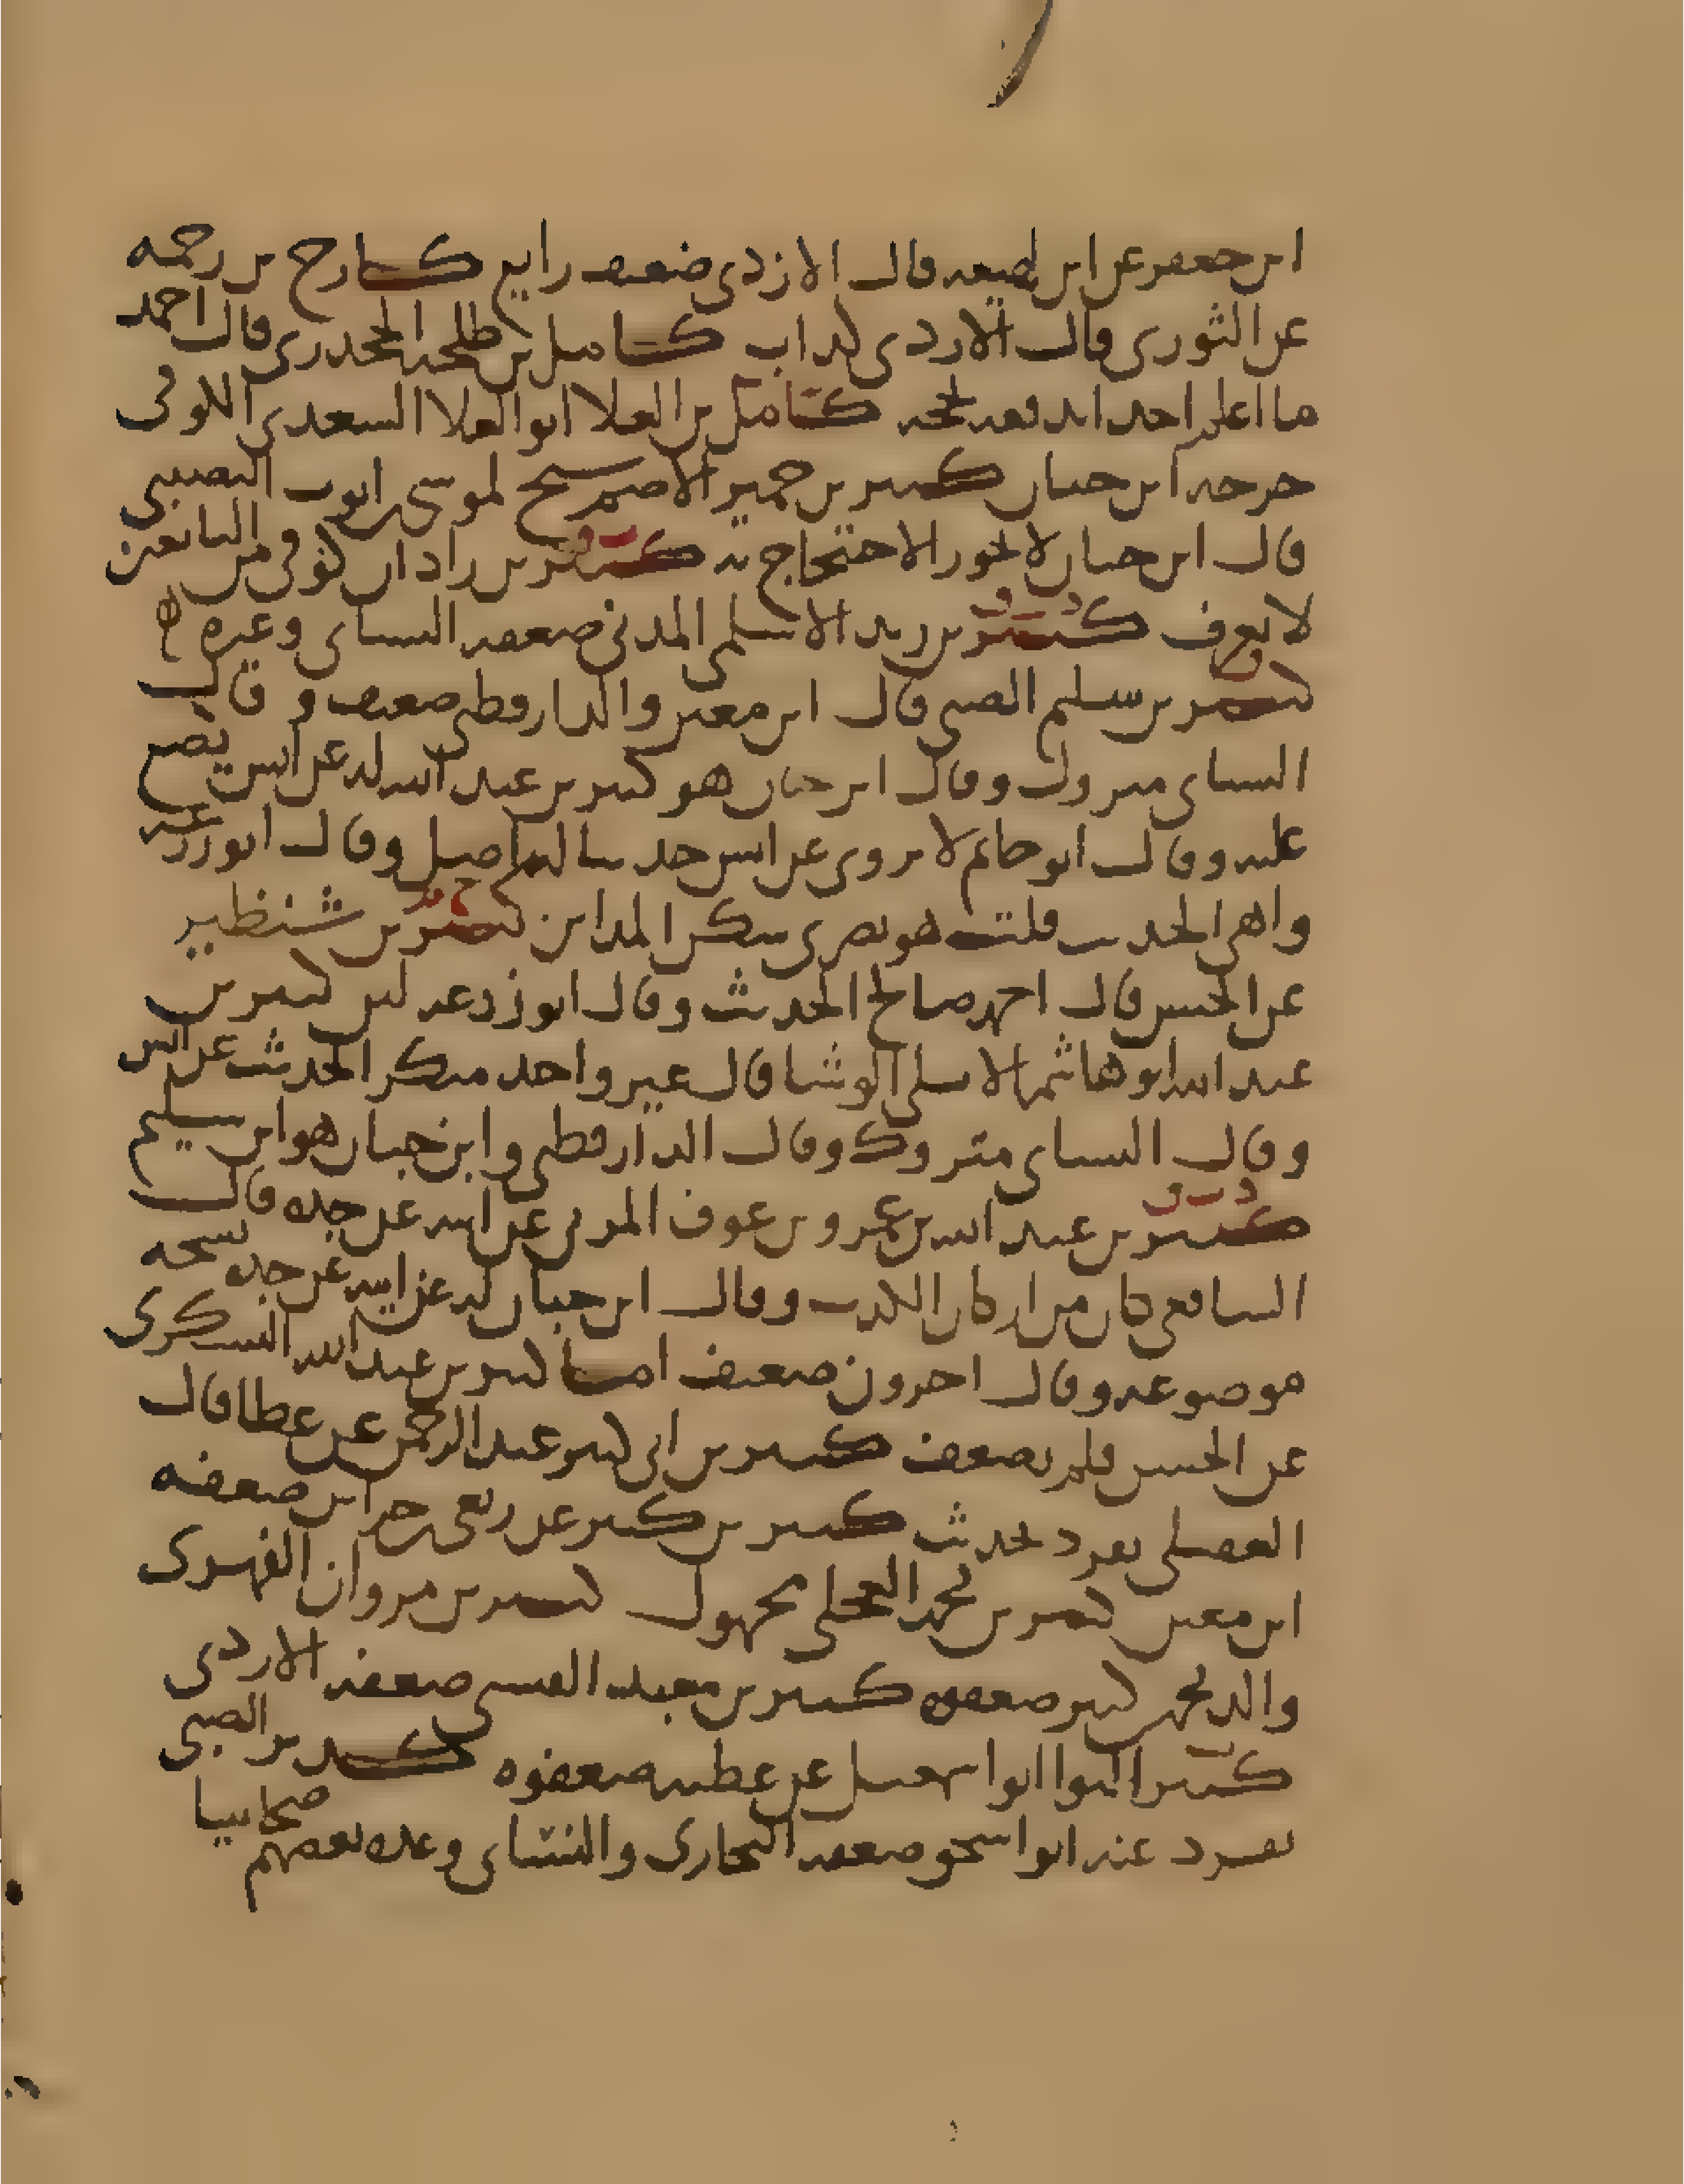 ابن جعفر عن ابن لهيعه قال الازدى ضعيف زايع كادح بن رحمه
عن الثورى قال الازدى كذاب كامل بن طلحه الجحدرى قال احمد
ما اعلم احدا يدفعه بحجه كامل بن العلا ابو العلا السعدى الكوفى
جرحه ابن حبان كثير بن حمير الاصم شيخ لموسى بن ايوب النصيبى
قال ابن حبان لا يجوز الاحتجاج به كثير بن زاذان كوفى من التابعين
لا يعرف كثير بن زيد الاسلمى المدنى ضعفه النساى وغيره
كثير بن سليم الضبى قال ابن معين والدارقطنى ضعيف وقال
النساى متروك وقال ابن حبان هو كثير بن عبد الله له عن انس يضع
عليه وقال ابو حاتم لا يروى عن انس حديثا له اصل وقال ابو زرعه
واهى الحديث قلت هو بصرى سكن المداين كثير بن شنظير
عن الحسن قال احمد صالح الحديث وقال ابو زرعه لين كثير بن
عبد الله ابو هاشم الاسلى الوشا قال غير واحد منكر الحديث عن انس
وقال النساى متروك وقال الدارقطنى وابن حبان هو ابن سليم
كثير بن عبد الله بن عمرو بن عوف المزنى عن ابيه عن جده قال
الشافعى كان من اركان الكذب وقال ابن حبان له عن ابيه عن جده نسخه
موضوعه وقال اخرون ضعيف اما كثير بن عبد الله اليشكرى
عن الحسن فلم يضعف كثير بن ابى كثير عبد الرحمن عن عطا قال
العقيلى تفرد بحديث كثير بن كثير عن ربعى بن حراش ضعفه
ابن معين كثير بن محمد العجلى مجهول كثير بن مروان الفهرى
والد محمد بن كثير ضعفوه كثير بن معبد القيسى ضعفه الازدى
كثير النوا ابو اسمعيل عن عطيه ضعفوه كدير الضبى
تفرد عنه ابو اسحق ضعفه البخارى والنساى وعده بعضهم صحابيا